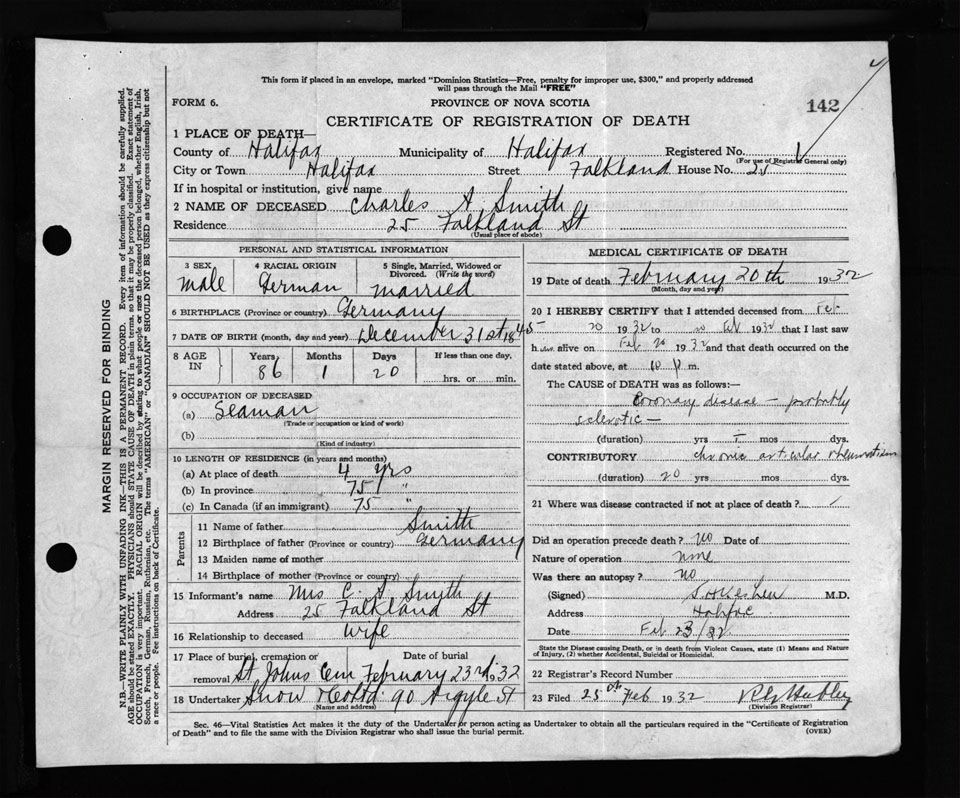 This form if placed in an envelope, marked "Dominion Statistics—Free, penalty for improper use, $300," and properly addressed
will pass through the Mail "FREE"
FORM 6. PROVINCE OF NOVA SCOTIA 142
CERTIFICATE OF REGISTRATION OF DEATH
1 PLACE OF DEATH—
County of Halifax Municipality of Halifax Registered No. 1
(For use of Registrar General only)
City or Town Halifax Street Falkland House No. 25
If in hospital or institution, give name
2 NAME OF DECEASED Charles A. Smith
Residence 25 Falkland St
(Usual place of abode)
PERSONAL AND STATISTICAL INFORMATION
3 SEX 4 RACIAL ORIGIN 5 Single, Married, Widowed or
Divorced. (Write the word)
Male German married
6 BIRTHPLACE (Province or country) Germany
7 DATE OF BIRTH (month, day and year) December 31st 1845
8 AGE IN Years Months Days If less than one day,
86 1 20 hrs. or min.
9 OCCUPATION OF DECEASED
(a) Seaman
(Trade or occupation or kind of work)
(b)
(Kind of industry)
10 LENGTH OF RESIDENCE (in years and months)
(a) At place of death 4 yrs
(b) In province 75 "
(c) In Canada (if an immigrant) 75 "
Parents
11 Name of father Smith
12 Birthplace of father (Province or country) Germany
13 Maiden name of mother
14 Birthplace of mother (Province or country)
15 Informant's name Mrs C. A Smyth
Address 25 Falkland St
16 Relationship to deceased wife
17 Place of burial, cremation or Date of burial
removal St Johns Cem February 23rd 1932
18 Undertaker Snow 90 Argyle St
(Name and address)
MEDICAL CERTIFICATE OF DEATH
19 Date of death February 20th 1932
(Month, day and year)
20 I HEREBY CERTIFY that I attended deceased from Feb
20 1932 to 20 Feb 1932 that I last saw
h alive on Feb 20 1932 and that death occurred on the
date stated above, at 10 P m.
The CAUSE OF DEATH was as follows:—
Coronary disease — probably
sclerotic —
(duration) yrs mos dys.
CONTRIBUTORY chronic articular rheumatism
(duration) 20 yrs mos dys.
21 Where was disease contracted if not at place of death?
Did an operation precede death? no Date of
Nature of operation none
Was there an autopsy? no
(Signed) M.D.
Address Halifax
Date Feb 23/32
State the Disease causing Death, or in death from Violent Causes, state (1) Means and Nature
of Injury, (2) whether Accidental, Suicidal or Homicidal.
22 Registrar's Record Number
23 Filed 25th Feb 1932
(Division Registrar)
Sec. 46—Vital Statistics Act makes it the duty of the Undertaker or person acting as Undertaker to obtain all the particulars required in the "Certificate of Registration
of Death" and to file the same with the Division Registrar who shall issue the burial permit. (OVER)
MARGIN RESERVED FOR BINDING
N.B.—WRITE PLAINLY WITH UNFADING INK—THIS IS A PERMANENT RECORD. Every item of information should be carefully supplied.
AGE should be stated EXACTLY. PHYSICIANS should STATE CAUSE OF DEATH in plain terms, so that it may be properly classified. Exact statement of
OCCUPATION is very important. RACIAL ORIGIN will be described by stating to what people or race the deceased person belonged, whether English, Irish,
Scotch, French, German, Russian, Ruthenian, etc. The terms "AMERICAN" or "CANADIAN" SHOULD NOT BE USED as they express citizenship but not
a race or people. Fee instructions on back of Certificate.